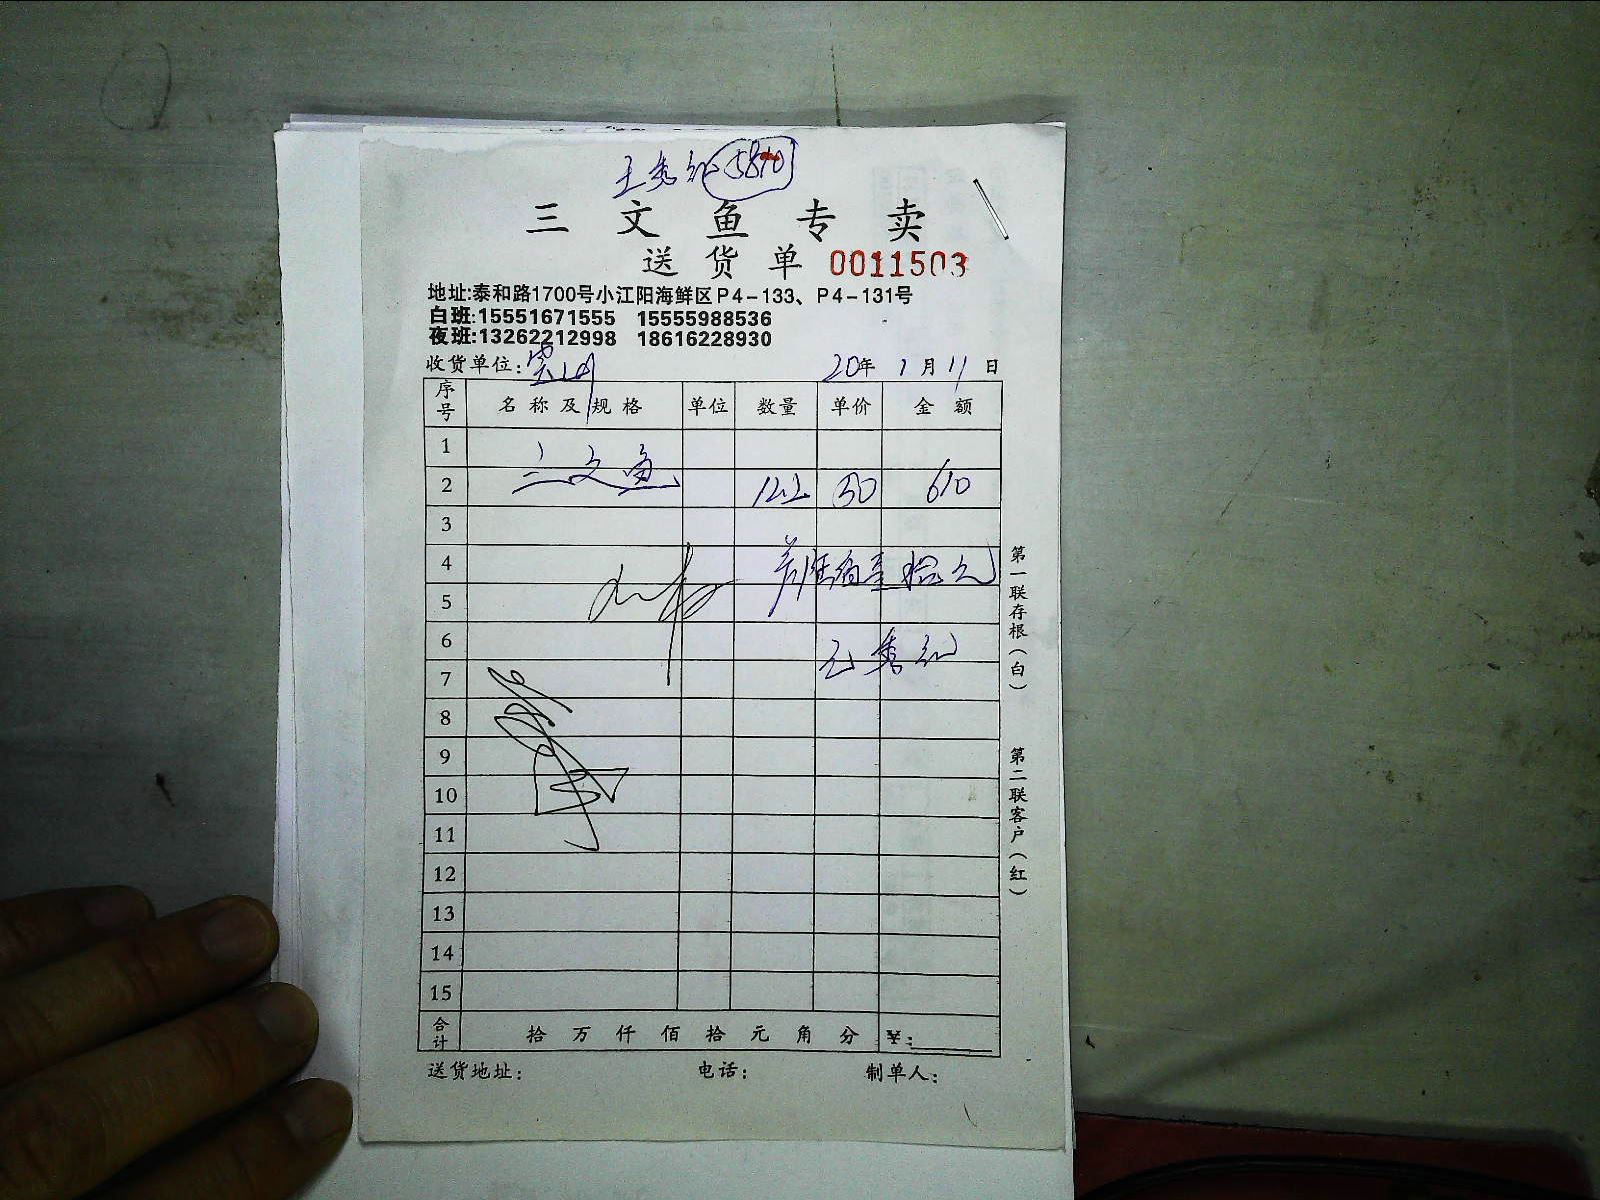 王秀红 5810
三文鱼专卖
送货单 0011503
地址:泰和路1700号小江阳海鲜区P4-133、P4-131号
白班:15551671555 15555988536
夜班:13262212998 18616228930
收货单位: 20年 1月11日
序号 名称及规格 单位 数量 单价 金额
1
2 三文鱼 12.2 50 610
3
4
5
6
7
8
9
10
11
12
13
14
15
合计 拾 万 仟 佰 拾 元 角 分 ¥:
送货地址: 电话: 制单人:
第一联存根(白)
第二联客户(红)